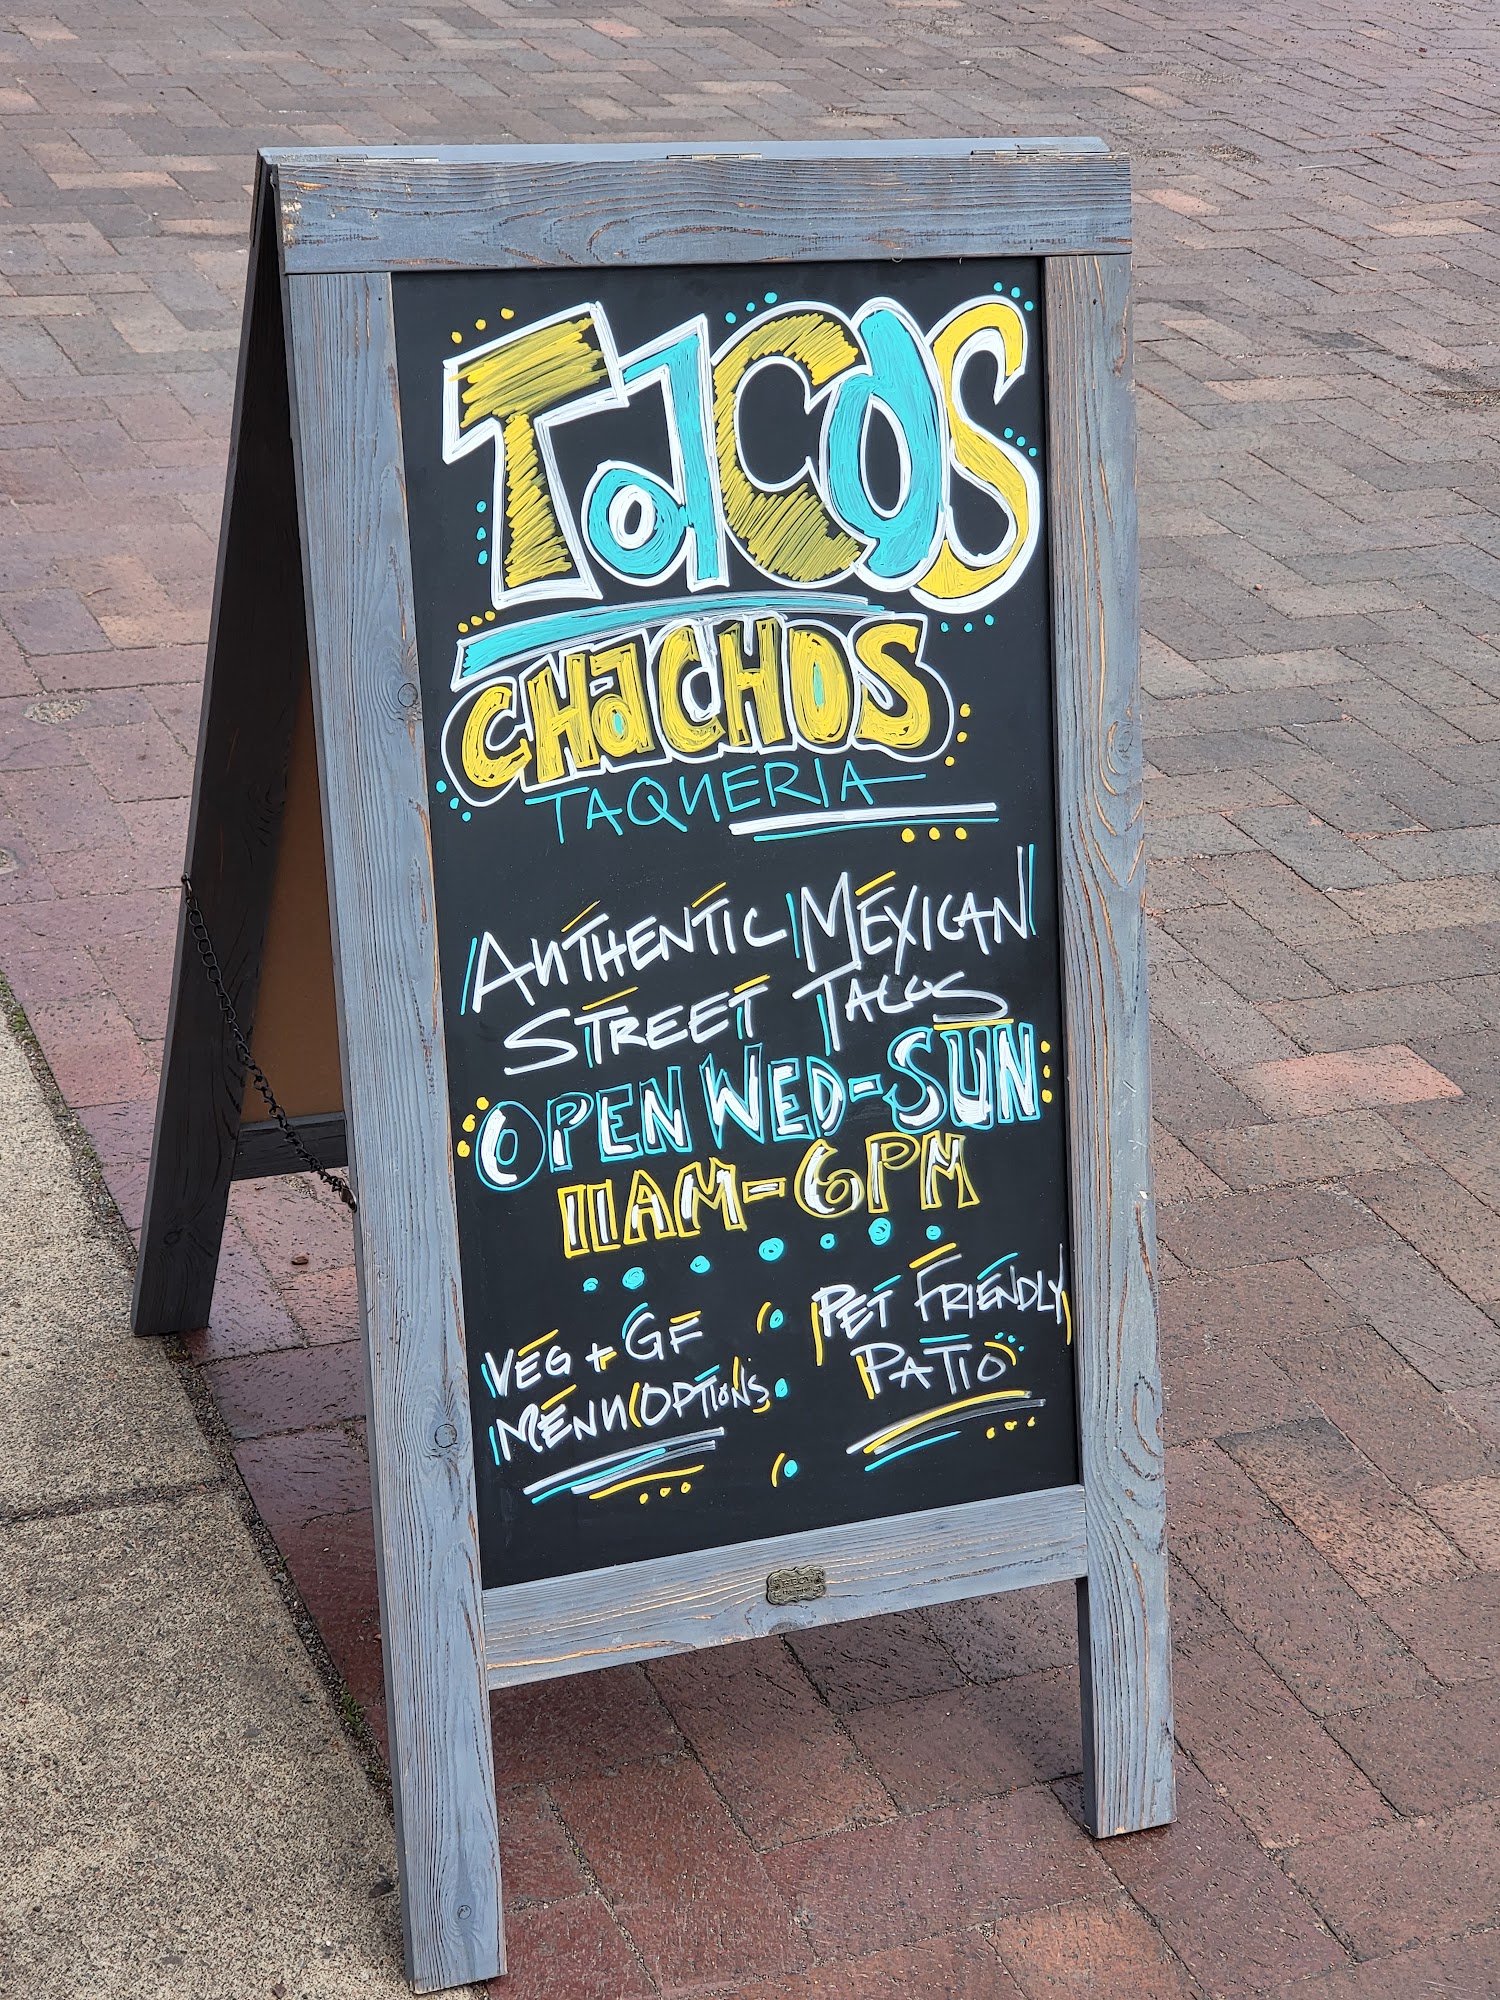 TaCOS
CHaCHOS
TAQUERIA
AUTHENTIC MEXICAN
STREET TACOS
OPEN WED-SUN
11AM-6PM
VEG + GF
MENU OPTIONS
PET FRIENDLY
PATIO